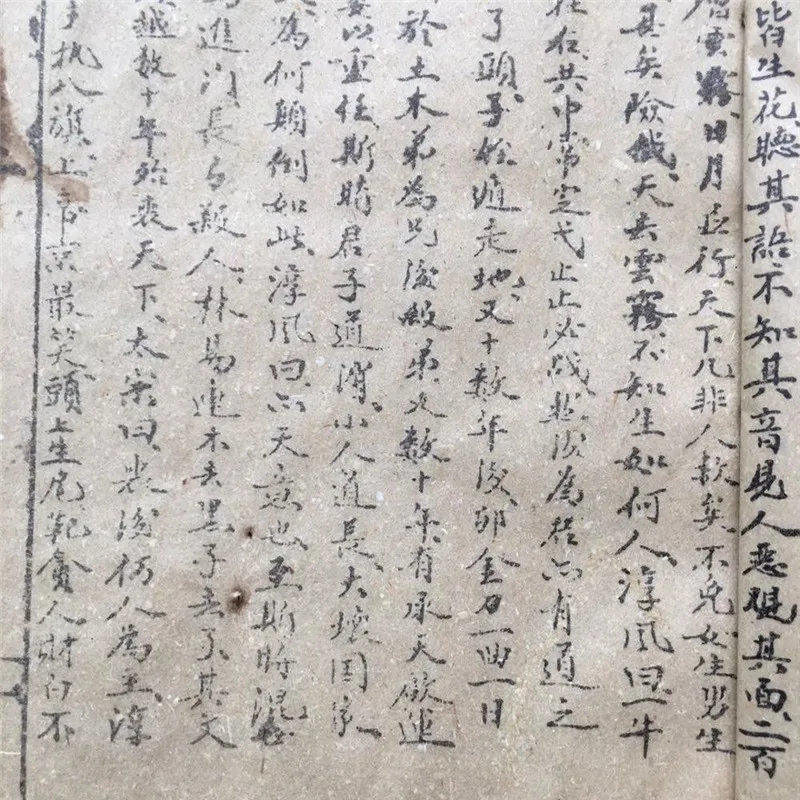 皆生花、聽其語不知其音見人惡覌其面、二百
層雲霧、日月並行、天下几非人数矣、不免女生男生
甚矣險哉、天去雲霧不知生如何人、淳風曰、一牛
在右、共中常定戈止止必戌然後為君亦有道之
了頭、子於遁走地、又十数年後、卯金刀一曲一日
於土木弟為兄後殺弟、又数十年、有承天啟運
委以重任、斯時君子道消、小人道長、大壞国家
為何顛倒如此、淳風曰、亦天意也、至斯時混
進门長弓殺人、林易連木去黑子去了、其文
越数十年始喪天下、太宗曰、喪後何人為主、淳
手执八旗、上帝京最笑頭上生尾、靶貪人財、白不